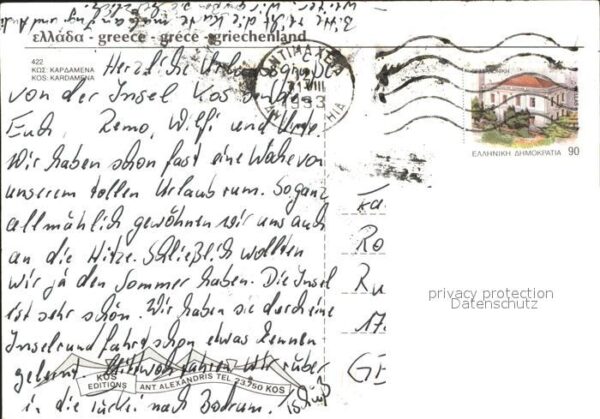 ελλάδα - greece - grèce - griechenland
422
ΚΩΣ: ΚΑΡΔΑΜΕΝΑ
KOS: KARDAMENA
Herzliche Urlaubsgrüße
von der Insel Kos senden
Euch, Remo, Wilfi und
Wir haben schon fast eine Woche von
unserem tollen Urlaub rum. So ganz
allmählich gewöhnen wir uns auch
an die Hitze. Schließlich wollten
wir ja den Sommer haben. Die Insel
ist sehr schön. Wir haben sie durch eine
Inselrundfahrt schon etwas kennen
gelernt. Mittwoch fahren wir rüber
in die Türkei nach Bodrum. Tschüß
KOS
EDITIONS ANT ALEXANDRIS TEL 23.750 KOS
ΑΝΤΙΜΑΧΕΙΑ
ΕΛΛΗΝΙΚΗ ΔΗΜΟΚΡΑΤΙΑ 90
Ka
Ro
Ru
17.
GE
privacy protection
Datenschutz